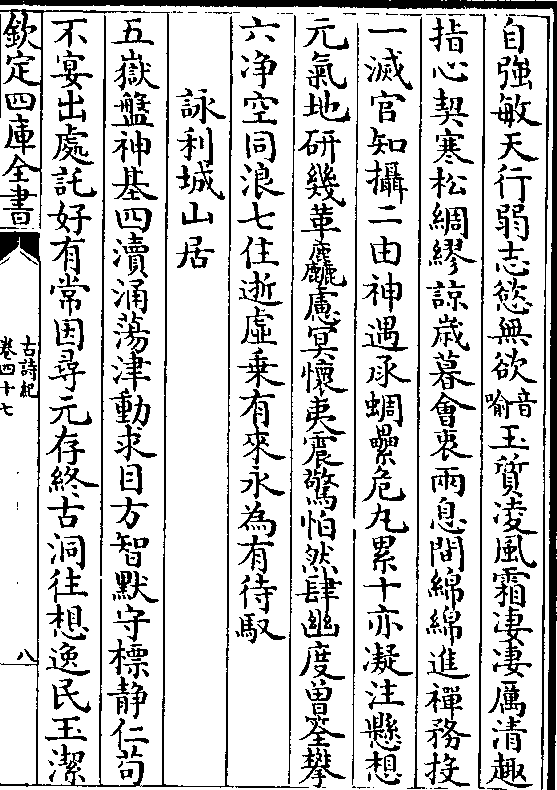 自強敏天行弱志慾無欲音喻玉質凌風霜淒淒厲清趣
指心契寒松綢繆諒歲暮會衷兩息間綿綿進禪務投
一滅官知攝二由神遇承蜩纍危丸累十亦凝注懸想
元氣地研幾革麤慮冥懷夷震驚怕然肆幽度曽筌攀
六净空同浪七住逝虛乗有來永為有待馭
詠利城山居
五嶽盤神基四瀆涌蕩津動求目方智默守標靜仁苟
不宴出處託好有常因尋元存終古洞往想逸民玉潔
欽定四庫全書
古詩紀
卷四十七
八